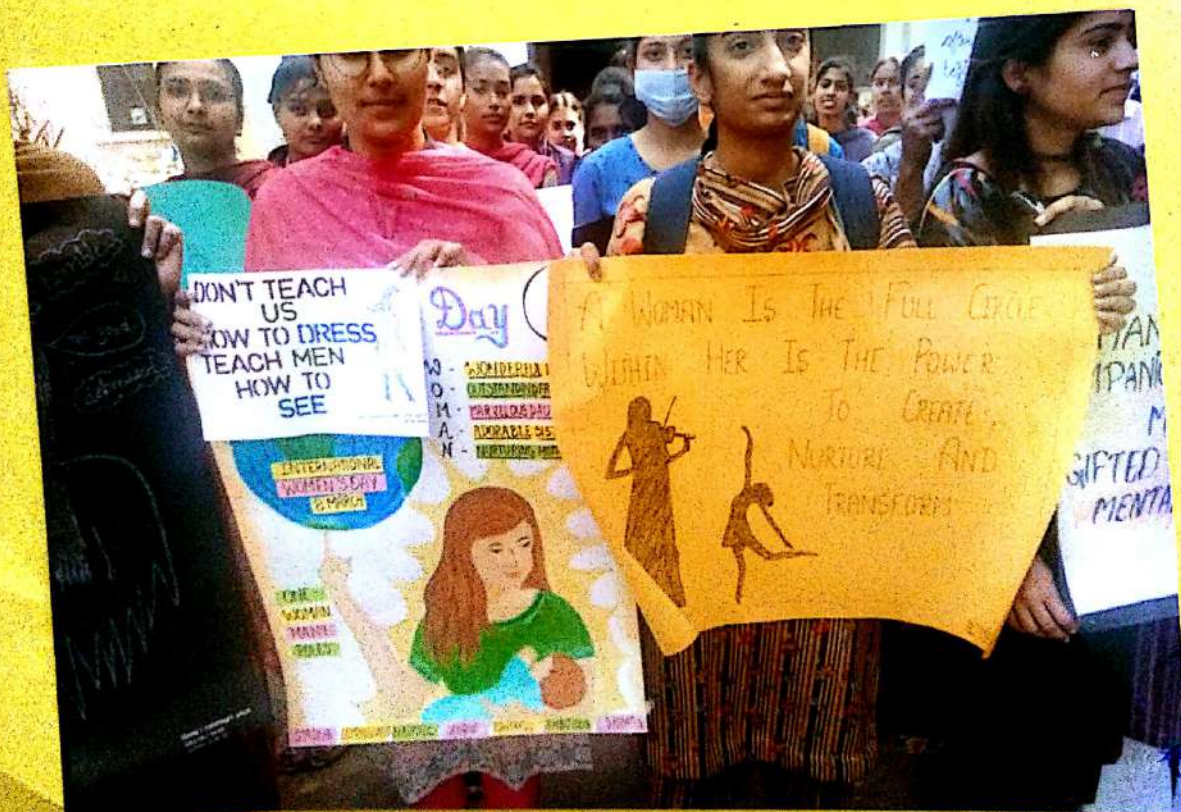 DON'T TEACH
US
HOW TO DRESS
TEACH MEN
HOW TO
SEE
Day
W - WONDERFUL
O - OUTSTANDING
M - MARVELLOUS
A - ADORABLE SIS
N - NURTURING
INTERNATIONAL
WOMEN'S DAY
8 MARCH
ONE
WOMAN
MANY
ROLES
A WOMAN IS THE FULL CIRCLE
WITHIN HER IS THE POWER
TO CREATE,
NURTURE AND
TRANSFORM
MAN
MPANI
M
GIFTED
MENTA